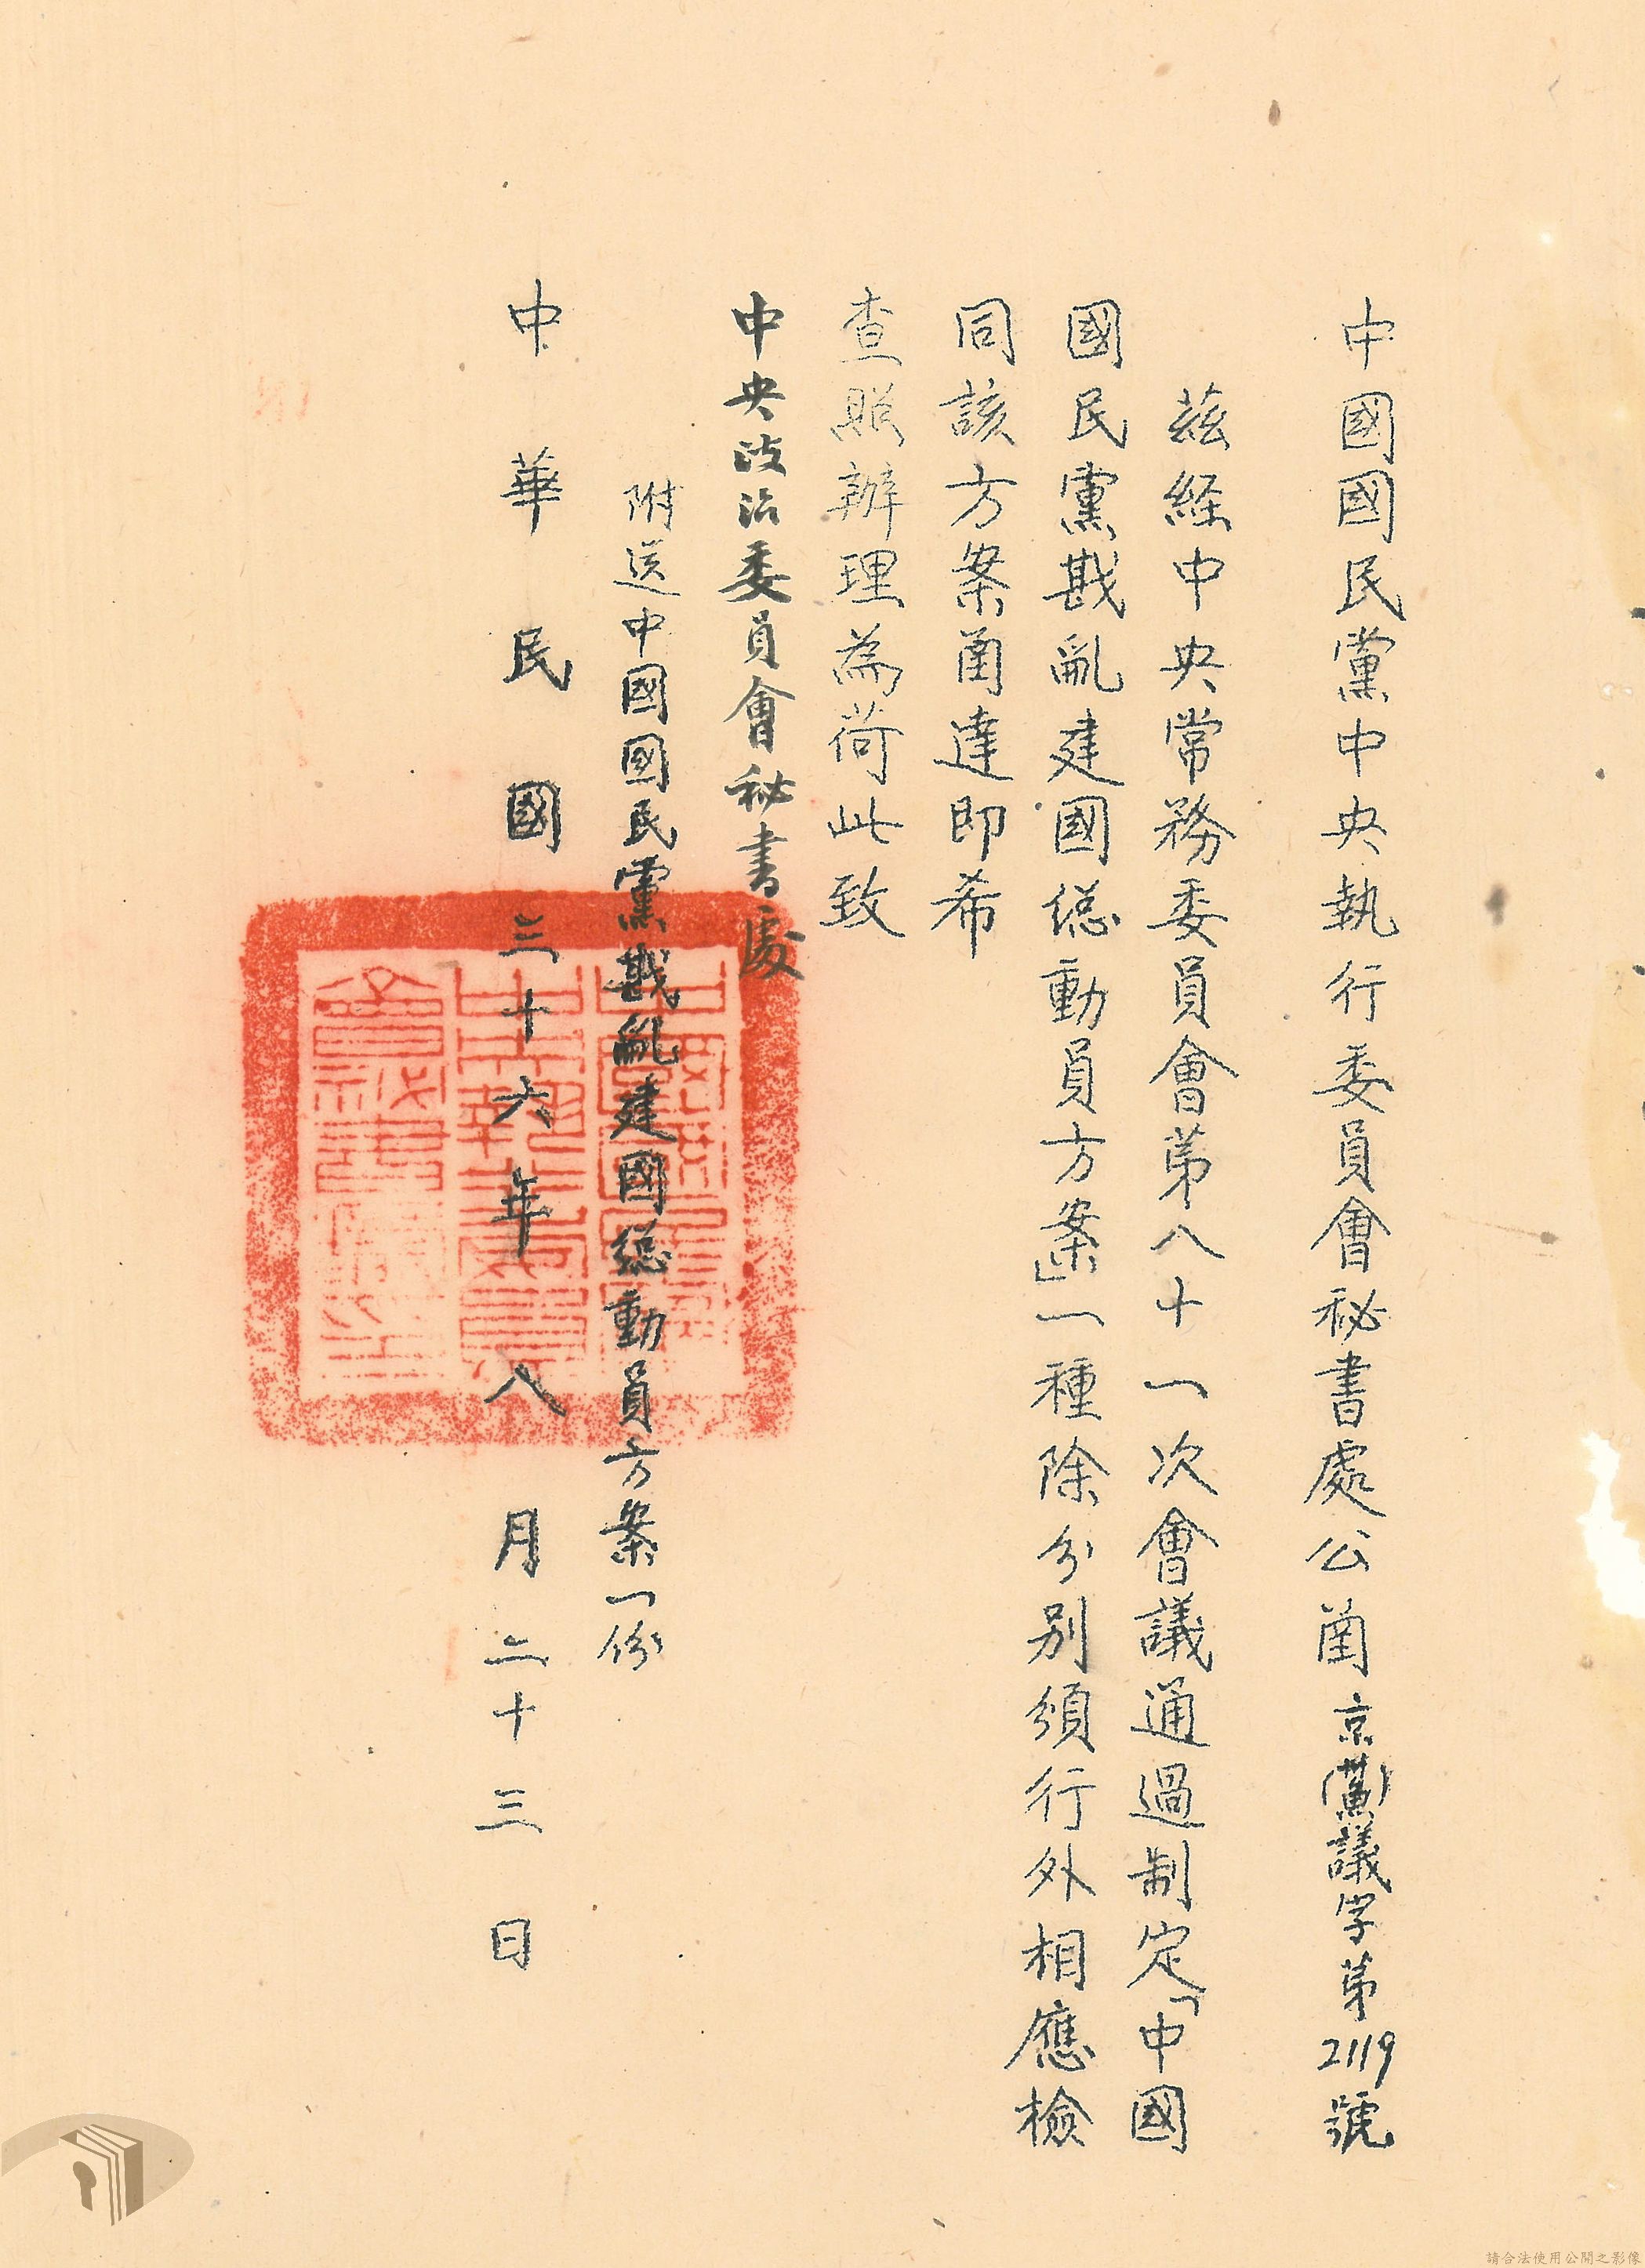 中國國民黨中央執行委員會秘書處公函京(黨)議字第2119號
茲経中央常務委員會第八十一次會議通過制定「中國
國民黨戡亂建國總動員方案」一種除分別頒行外相應檢
同該方案函達即希
查照辦理為荷此致
中央政治委員會秘書處
附送中國國民黨戡亂建國總動員方案一份
中華民國三十六年八月二十三日
請合法使用公開之影像